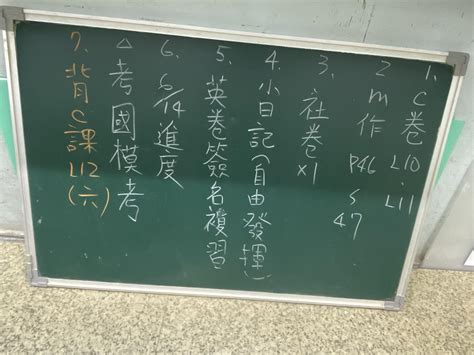 1. C卷 L10. L11
2. m作 P46 s 47
3. 社卷x1
4. 小日記(自由發揮)
5. 英卷簽名複習
6. 6/14進度
△考國模考
7. 背C課L12(六)